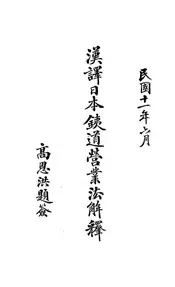 民國十一年六月
漢譯日本鐵道營業法解釋
高恩洪題簽